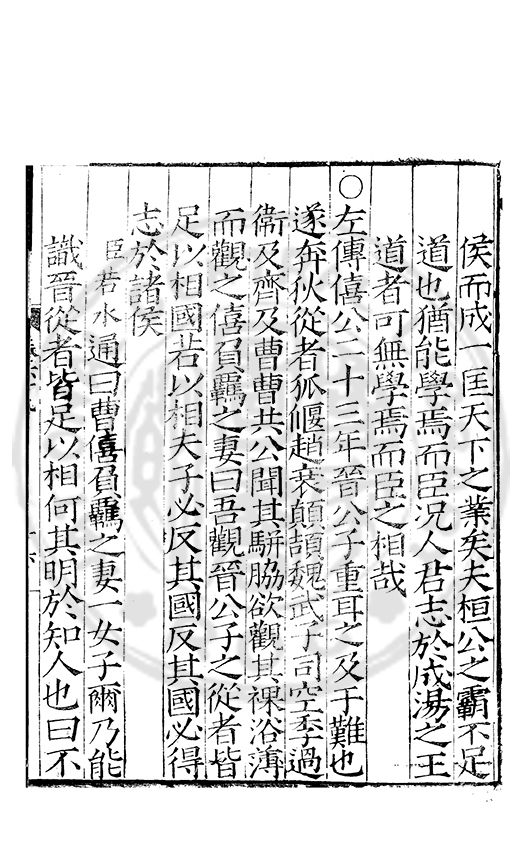 侯而成一匡天下之業矣夫桓公之霸不足
道也猶能學焉而臣况人君志於成湯之王
道者可無學焉而臣之相哉
○左傳僖公二十三年晉公子重耳之及于難也
遂奔狄從者狐偃趙衰顛頡魏武子司空季過
衞及齊及曹曹共公聞其駢脇欲觀其裸浴薄
而觀之僖負羈之妻曰吾觀晉公子之從者皆
足以相國若以相夫子必反其國反其國必得
志於諸侯
臣若水通曰曹僖負羈之妻一女子爾乃能
識晉從者皆足以相何其明於知人也曰不